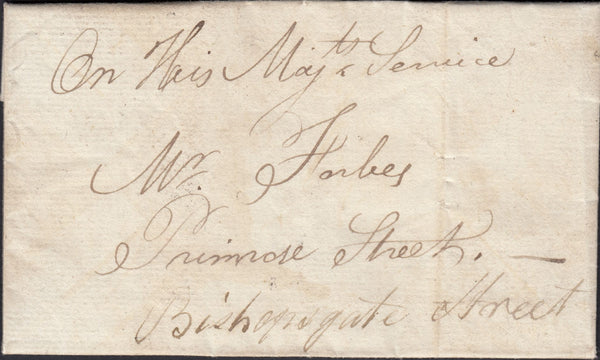 On His Majts Service
Mr. Forbes
Primrose Street. —
Bishopsgate Street